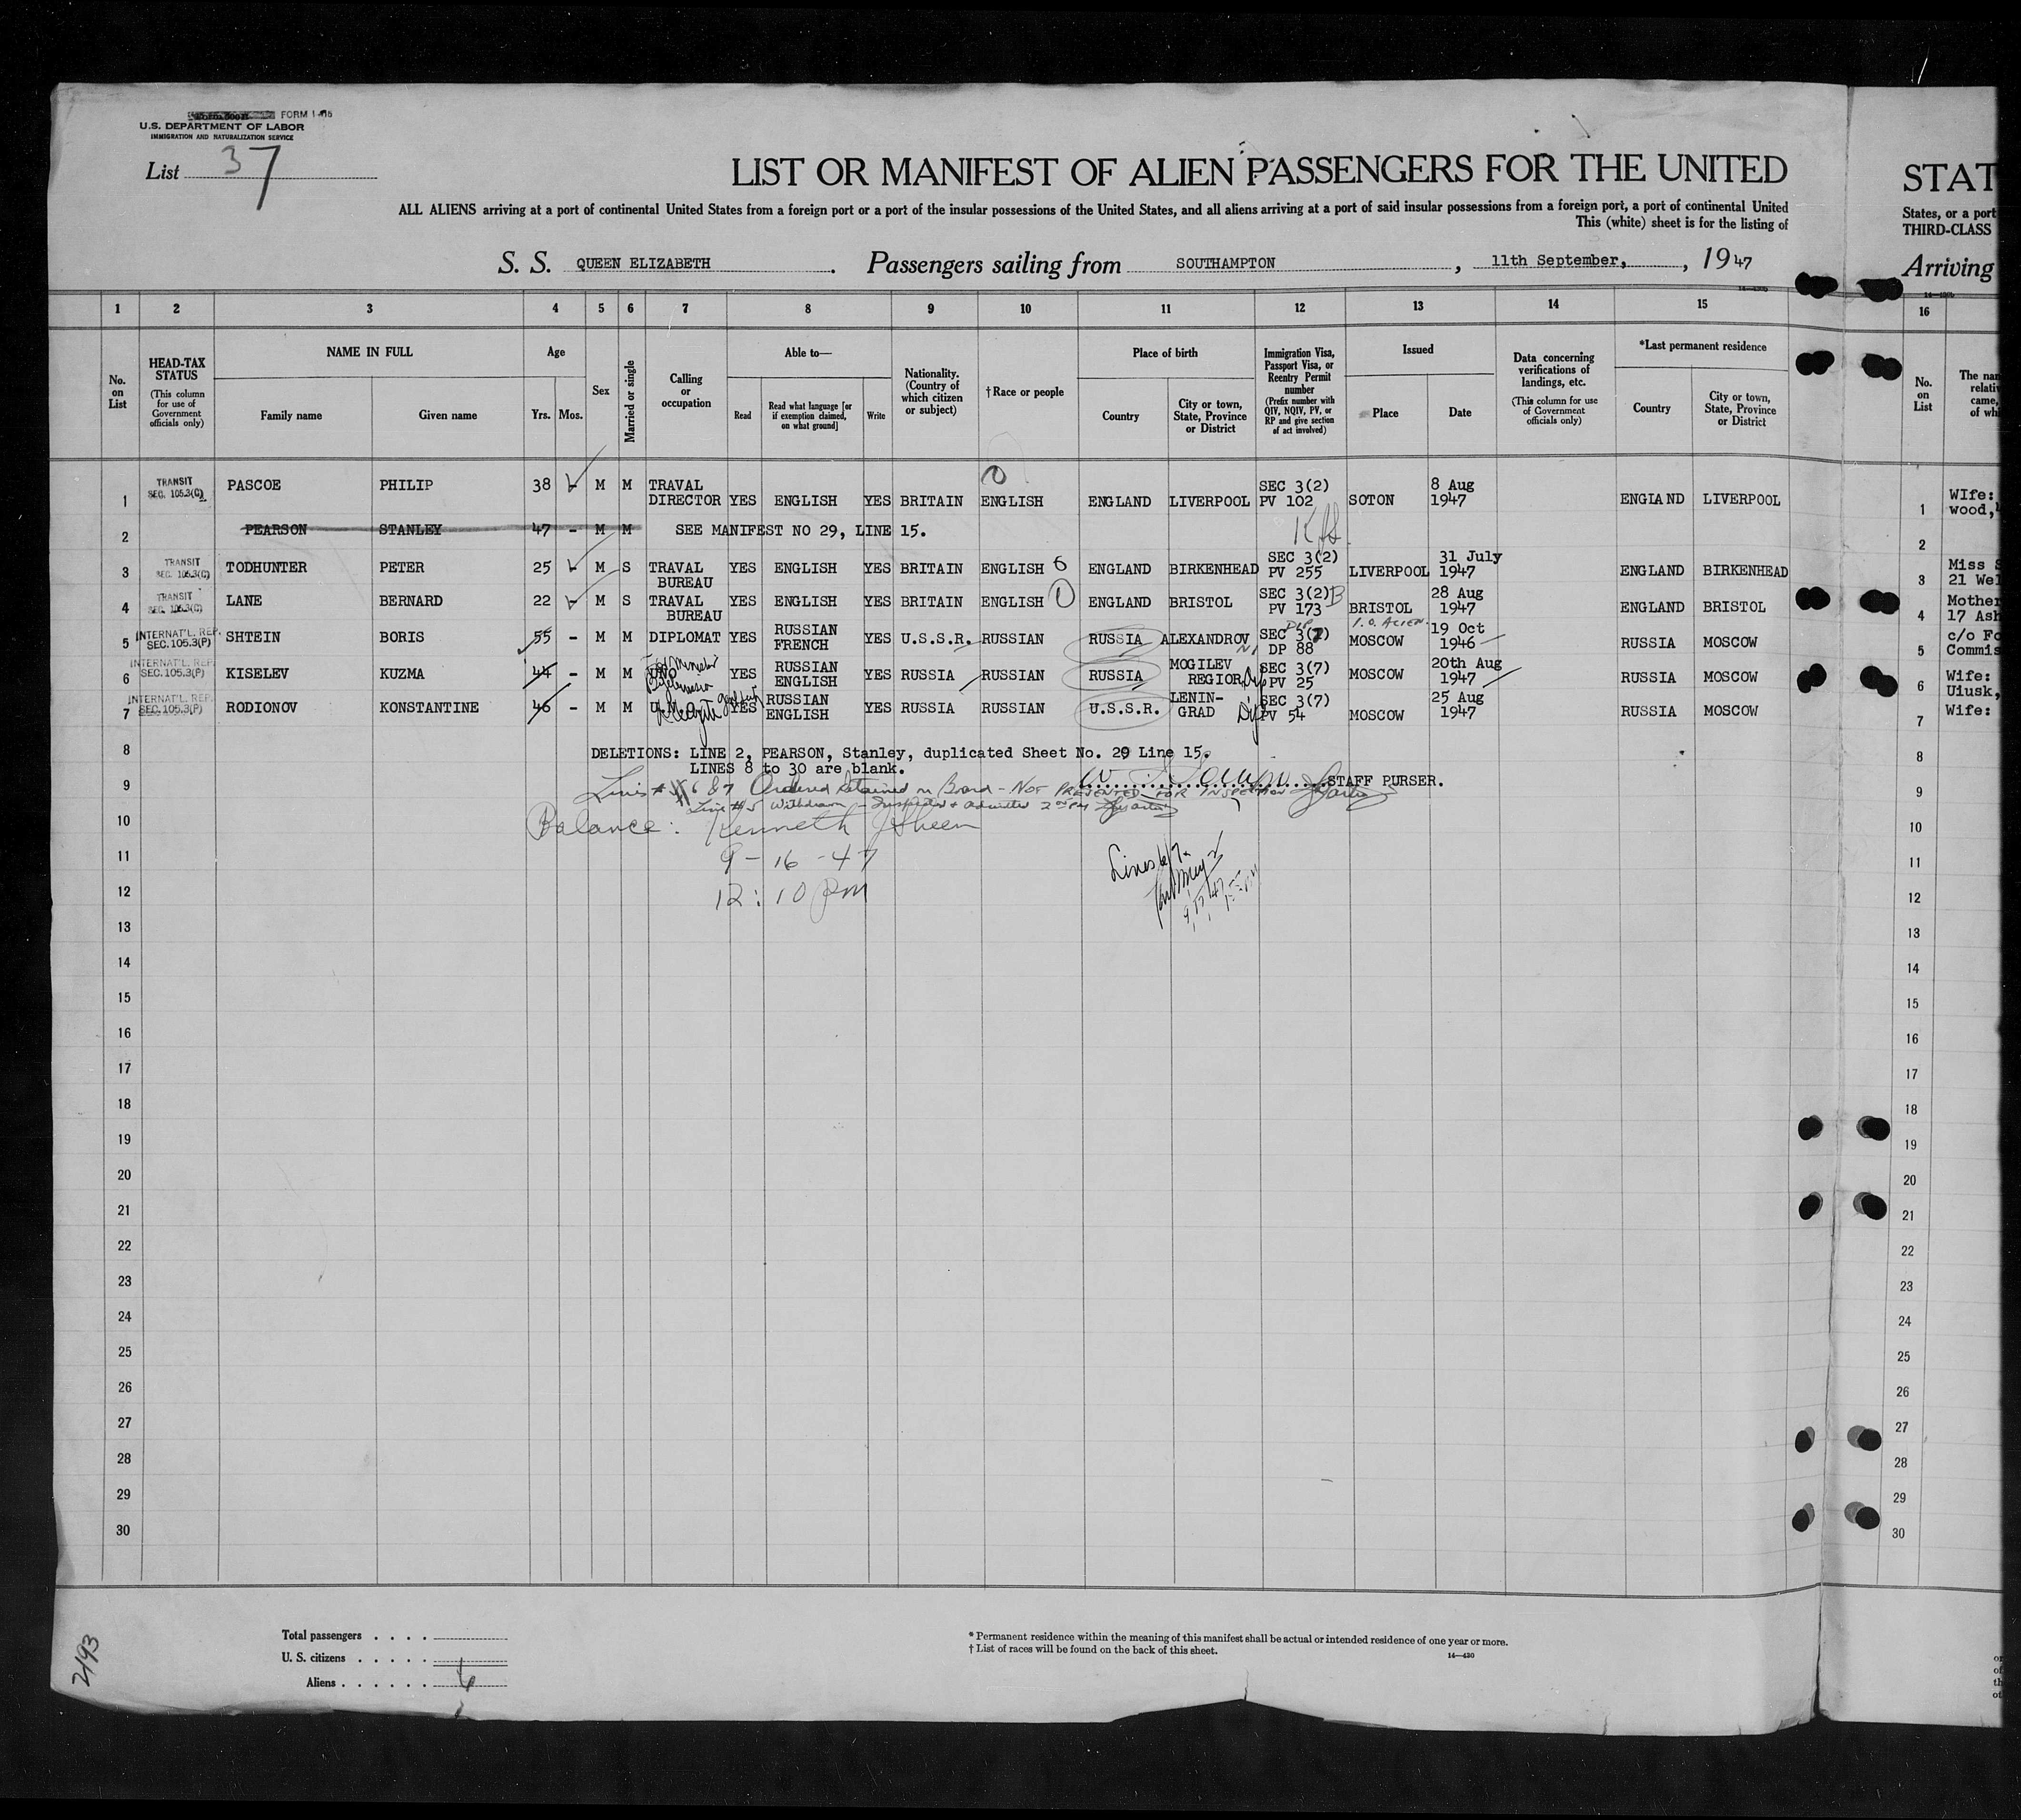 FORM I-415
U.S. DEPARTMENT OF LABOR
IMMIGRATION AND NATURALIZATION SERVICE
List 37
LIST OR MANIFEST OF ALIEN PASSENGERS FOR THE UNITED
STAT
ALL ALIENS arriving at a port of continental United States from a foreign port or a port of the insular possessions of the United States, and all aliens arriving at a port of said insular possessions from a foreign port, a port of continental United
States, or a port
This (white) sheet is for the listing of
THIRD-CLASS
S. S. QUEEN ELIZABETH. Passengers sailing from SOUTHAMPTON, 11th September, , 1947
Arriving
1 2 3 4 5 6 7 8 9 10 11 12 13 14 15 16
No. on List
HEAD-TAX STATUS
(This column for use of Government officials only)
NAME IN FULL
Family name Given name
Age
Yrs. Mos.
Sex
Married or single
Calling or occupation
Able to—
Read
Read what language [or if exemption claimed, on what ground]
Write
Nationality. (Country of which citizen or subject)
†Race or people
Place of birth
Country
City or town, State, Province or District
Immigration Visa, Passport Visa, or Reentry Permit number
(Prefix number with QIV, NQIV, PV, or RP and give section of act involved)
Issued
Place Date
Data concerning verifications of landings, etc.
(This column for use of Government officials only)
*Last permanent residence
Country
City or town, State, Province or District
No. on List
The nam
relativ
came,
of wh
1 TRANSIT SEC. 105.3(C) PASCOE PHILIP 38 - M M TRAVAL DIRECTOR YES ENGLISH YES BRITAIN ENGLISH ENGLAND LIVERPOOL SEC 3(2) PV 102 SOTON 8 Aug 1947 ENGLAND LIVERPOOL 1 WIfe: wood,
2 PEARSON STANLEY 47 - M M SEE MANIFEST NO 29, LINE 15. 2
3 TRANSIT SEC. 105.3(C) TODHUNTER PETER 25 - M S TRAVAL BUREAU YES ENGLISH YES BRITAIN ENGLISH ENGLAND BIRKENHEAD SEC 3(2) PV 255 LIVERPOOL 31 July 1947 ENGLAND BIRKENHEAD 3 Miss S 21 Wel
4 TRANSIT SEC. 105.3(C) LANE BERNARD 22 - M S TRAVAL BUREAU YES ENGLISH YES BRITAIN ENGLISH ENGLAND BRISTOL SEC 3(2) PV 173 BRISTOL 28 Aug 1947 ENGLAND BRISTOL 4 Mother 17 Ash
5 INTERNAT'L. REP. SEC. 105.3(P) SHTEIN BORIS 55 - M M DIPLOMAT YES RUSSIAN FRENCH YES U.S.S.R. RUSSIAN RUSSIA ALEXANDROV DIP SEC 3(7) DP 88 MOSCOW 19 Oct 1946 RUSSIA MOSCOW 5 c/o Fo Commis
6 INTERNAT'L. REP. SEC. 105.3(P) KISELEV KUZMA 44 - M M UNO YES RUSSIAN ENGLISH YES RUSSIA RUSSIAN RUSSIA MOGILEV REGIOR Dip SEC 3(7) PV 25 MOSCOW 20th Aug 1947 RUSSIA MOSCOW 6 Wife: Ulusk,
7 INTERNAT'L. REP. SEC. 105.3(P) RODIONOV KONSTANTINE 46 - M M YES RUSSIAN ENGLISH YES RUSSIA RUSSIAN U.S.S.R. LENIN-GRAD Dip SEC 3(7) PV 54 MOSCOW 25 Aug 1947 RUSSIA MOSCOW 7 Wife:
8 DELETIONS: LINE 2, PEARSON, Stanley, duplicated Sheet No. 29 Line 15. 8
LINES 8 to 30 are blank.
9 STAFF PURSER. 9
Lines # 6 & 7 Ordered Detained on Board - NOT PRESENTED FOR INSPECTION
Line # 5 Withdrawn - Inspected + admitted 2nd PM
10 Balance: Kenneth J Sheen 10
11 9-16-47 Lines 6/7 11
12 12:10 pm 12
13 13
14 14
15 15
16 16
17 17
18 18
19 19
20 20
21 21
22 22
23 23
24 24
25 25
26 26
27 27
28 28
29 29
30 30
Total passengers . . . .
U. S. citizens . . . . .
Aliens . . . . . . 6
* Permanent residence within the meaning of this manifest shall be actual or intended residence of one year or more.
† List of races will be found on the back of this sheet.
14—430
2193